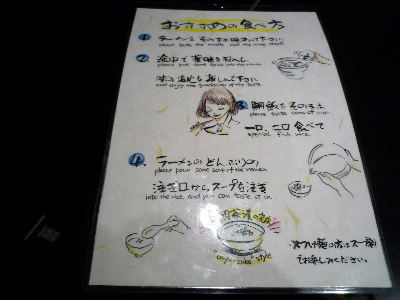 おすすめの食べ方
① ラーメンをそのまま味わって下さい
please taste the noodle and the soup itself.
② 途中で薬味を投入し
please put some spice into the ramen
味の変化を楽しんで下さい
and enjoy the gradation of the taste
③ 鯛飯をそのまま
please taste some of our
一口、二口食べて
special fish rice.
④ ラーメンのどんぶりの
please pour some soup of the ramen
注ぎ口からスープを注ぎ
into the rice, and you can taste it in
鯛茶漬の
style
※つけ麺の方は
お楽しみください。